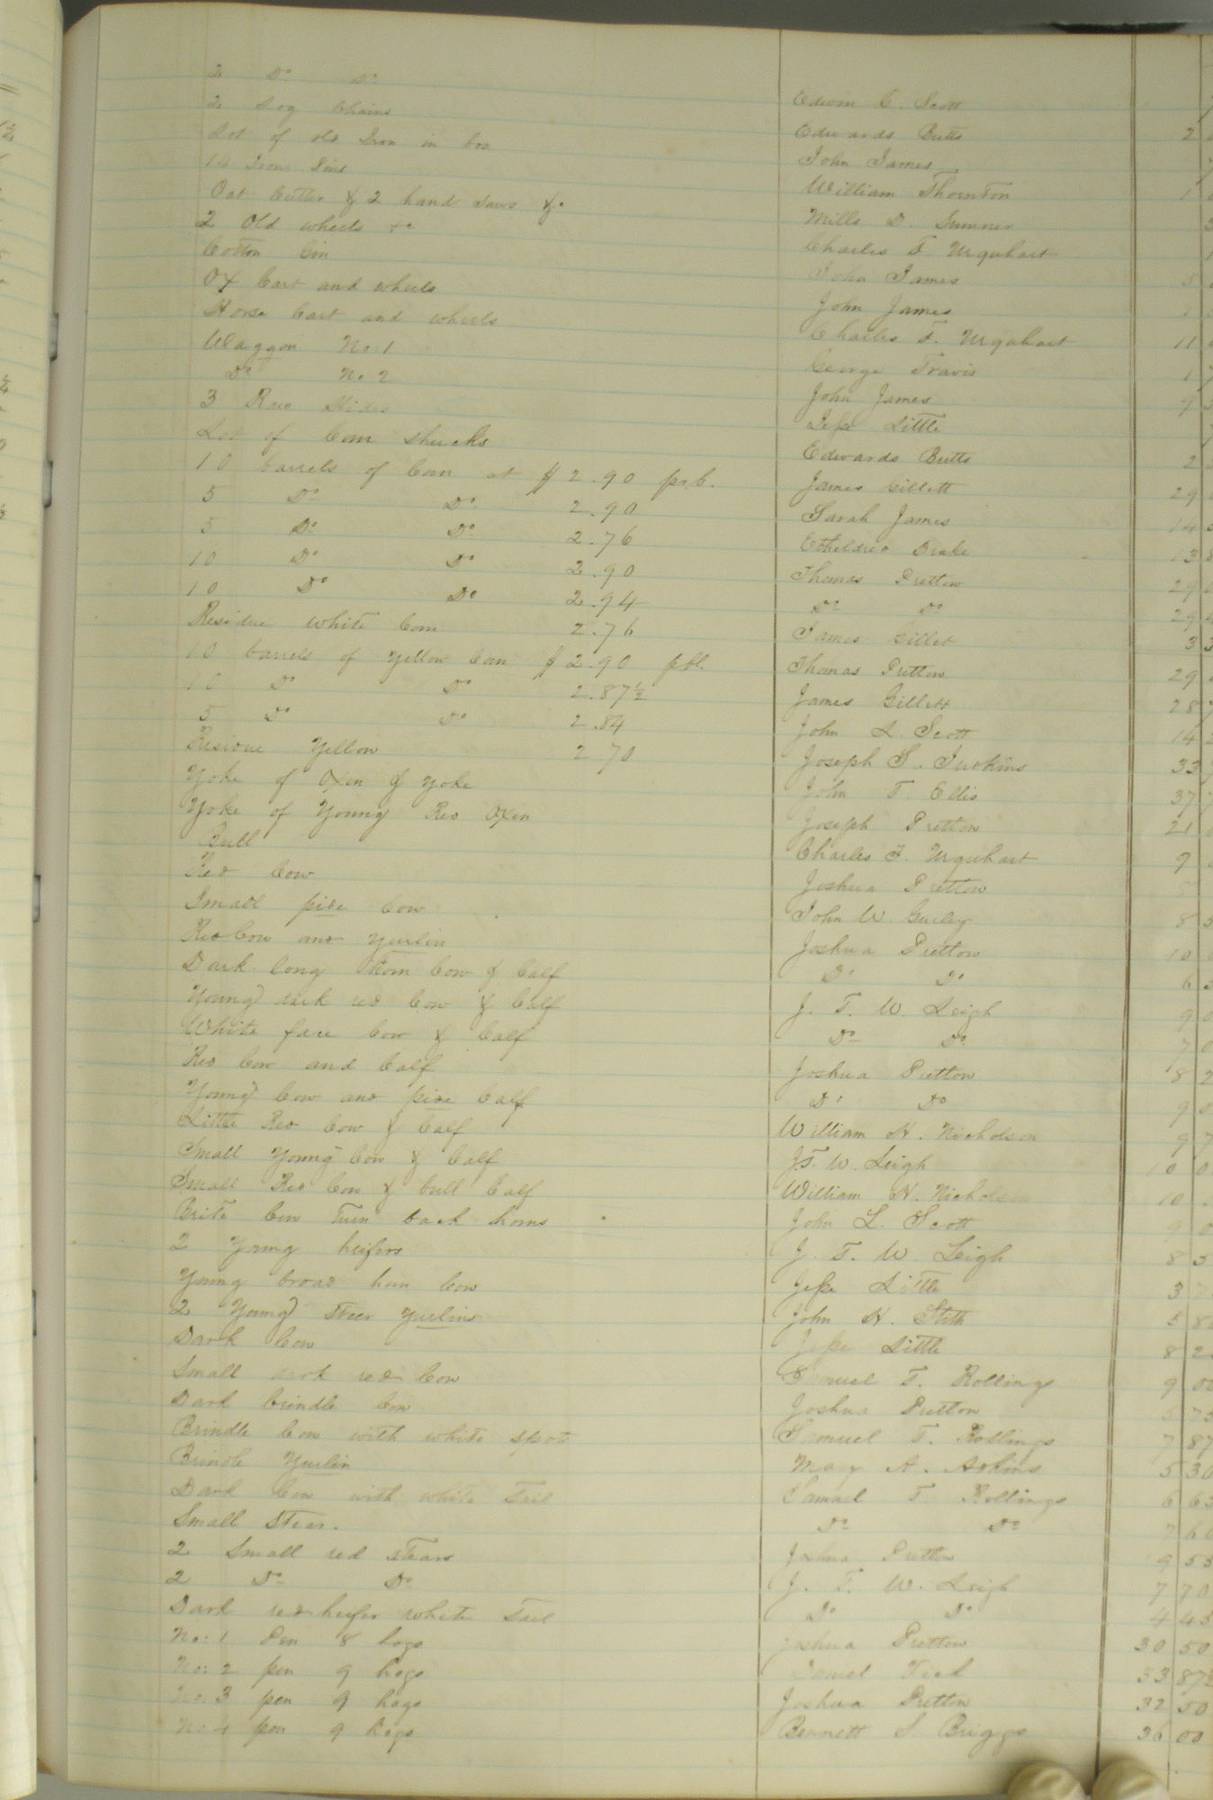 2 Do Do Edwin C. Scott
2 Log Chains Edwards Butts 2
Lot of old Iron in box John James
14 Iron William Thornton 1
Oat Cutter & 2 hand saws &c Mills D. Sumner
2 Old wheels &c Charles F. Urquhart
Cotton Gin John James 5
Ox Cart and wheels John James
Horse Cart and wheels Charles F. Urquhart 11
Waggon No. 1 George Travis 1
Do No 2 John James 9
3 Raw Hides Jesse Little
Lot of Corn shucks Edwards Butts 2
10 barrels of Corn at $ 2.90 prb. James Gillett 29
5 Do Do 2.90 Sarah James 14
5 Do Do 2.76 Etheldred Drake 13
10 Do Do 2.90 Thomas Pretlow 29
10 Do Do 2.94 Do Do 29
Residue white Corn 2.76 James Gillet 3 3
10 barrels of Yellow Corn $ 2.90 pbl. Thomas Pretlow 29
10 Do Do 2.87½ James Gillett 28 7
5 Do Do 2.84 John L. Scott 14
Residue Yellow 2 70 Joseph S. Judkins 33
Yoke of Oxen & Yoke John T. Ellis 37
Yoke of Young Red Oxen Joseph Pretlow 21
Bull Charles F. Urquhart 9
Red Cow Joshua Pretlow 8
Small pide Cow John W. Gurley 8 5
Red Cow and Yurlin Joshua Pretlow 10
Dark long Horn Cow & Calf Do Do 6 5
Young dark red Cow & Calf J. T. W. Leigh 9 0
White face Cow & Calf Do Do 7 0
Red Cow and Calf Joshua Pretlow 8 2
Young Cow and pide Calf Do Do 9 0
Little Red Cow & Calf William H. Nicholson 9 7
Small Young Cow & Calf J. T. W. Leigh 10 0
Small Red Cow & bull Calf William H. Nicholson 10
Brite Cow turn back horns John L. Scott 9 0
2 Young heifers J. T. W. Leigh 8 5
Young broad horn Cow Jesse Little 3
2 Young steer Yurlins John H. Stith 5 8
Dark Cow Jesse Little 8 2
Small dark red Cow Samuel T. Rollings 9 00
Dark brindle Cow Joshua Pretlow 5 75
Brindle Cow with white spots Samuel T. Rollings 7 87
Brindle Yurlin Mary A. Adkins 5 30
Dark Cow with white Tail Samuel T Rollings 6 65
Small Steer. Do Do 7 60
2 Small red Steers Joshua Pretlow 9 55
2 Do Do J. T. W. Leigh 7 70
Dark red heifer white Tail Do Do 4 45
No. 1 Pen 8 hogs Joshua Pretlow 30 50
No: 2 pen 9 hogs 33 87½
No. 3 pen 9 hogs Joshua Pretlow 32 50
No 4 pen 9 hogs Bennett S. Briggs 36 00